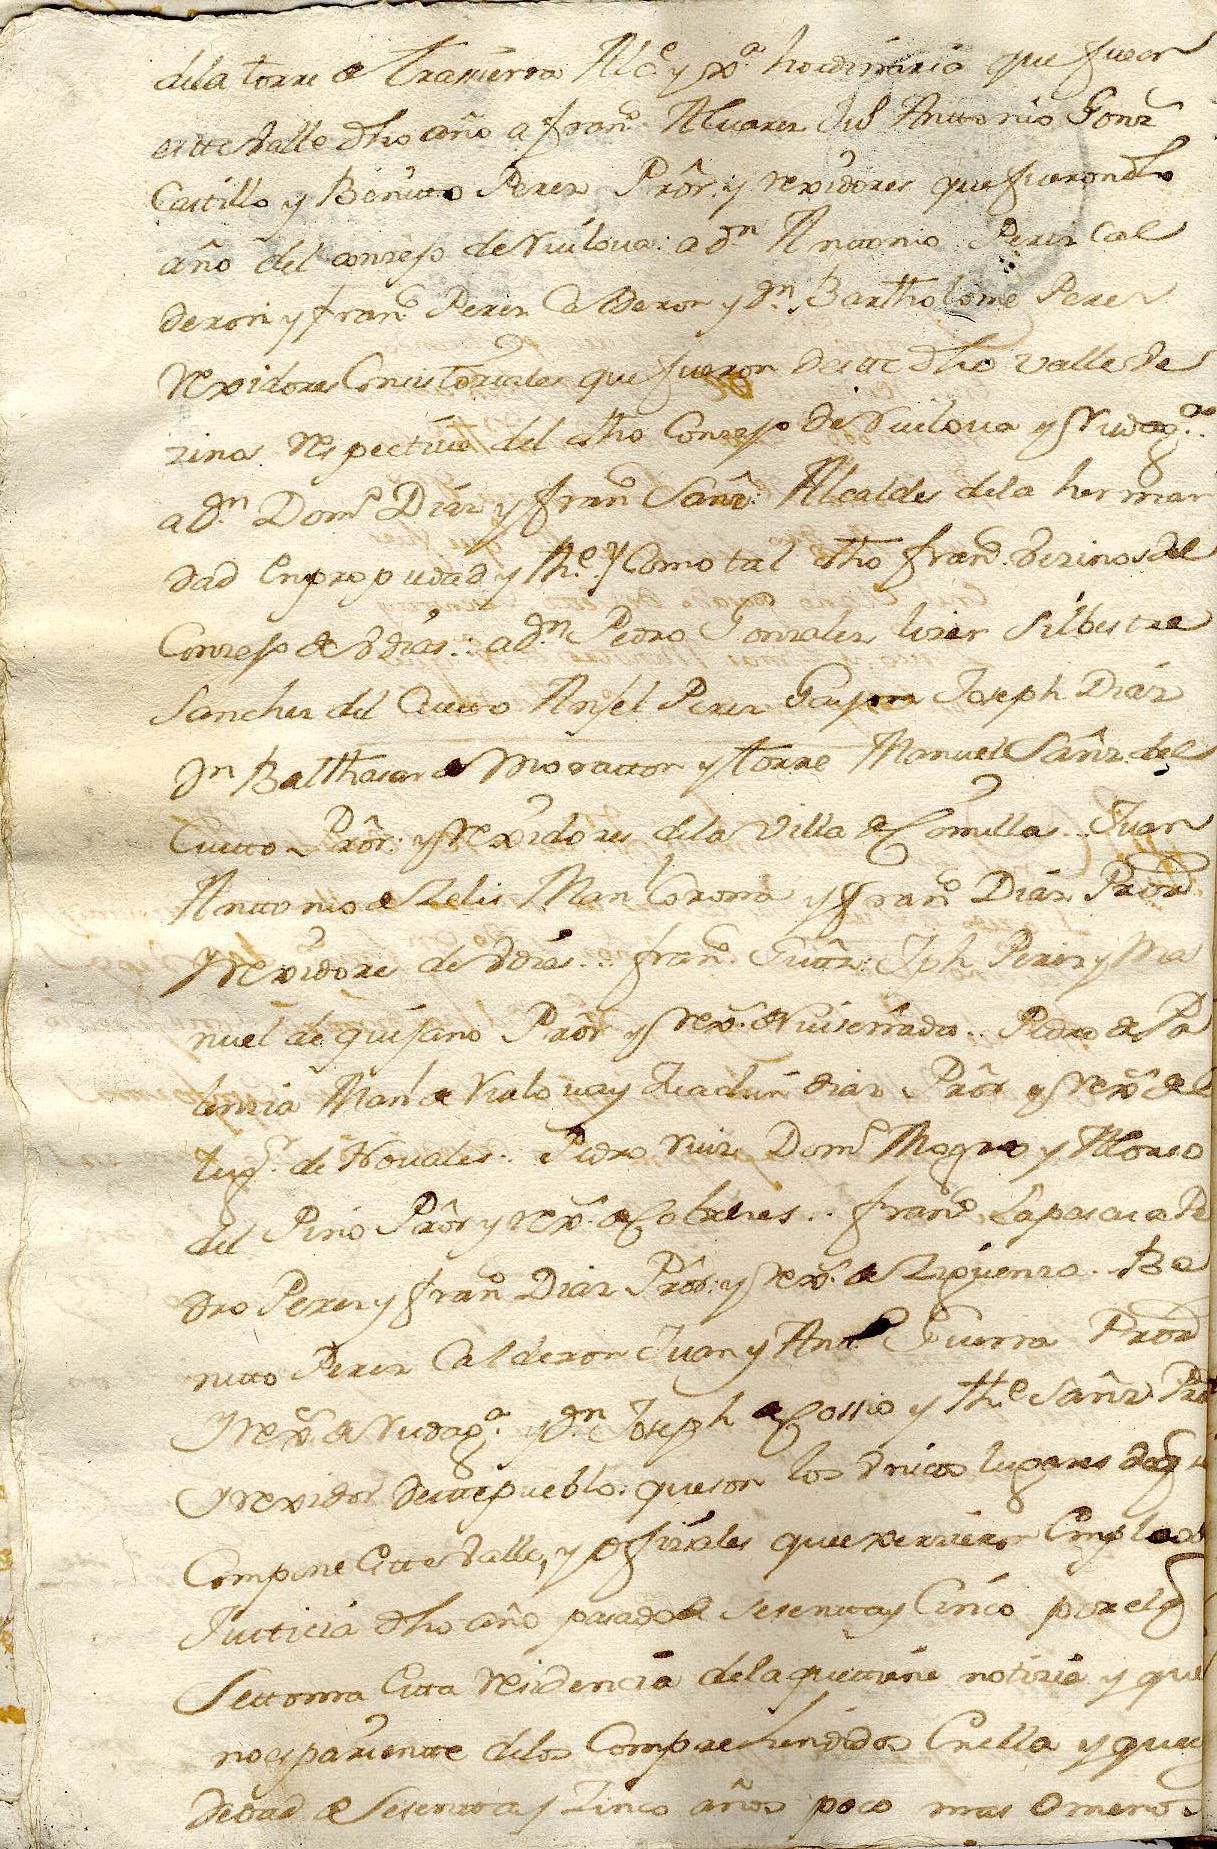 dela torre de Trasierra Alc.e y Jx.a hordinaria que fueron
estte Valle dho año a fran.co Alvarez del Anttonio Gonz
Castillo y Benitto Perez Prôr. y rexidores que fueron dho
año del conzejo de Ruiloua: a dn Antonio Perez Cal
deron y fran.co Perez Calderon y dn Bartholome Perez
Rexidores Consistoriales que fueron deste dho valle Ve
zinos respective del dho Conzejo de Ruiloua y Rudag.a
a dn Dom.o Diaz y fran.co Sanz. Alcaldes dela herman
dad En propiedad y the.e y Como tal dho fran.co Vezinos del
Conzejo de Vdias: a dn Pedro Gonzalez Silbestre
Sanchez del Cuetto Anjel Perez Gayon Joseph Diaz
Dn Balthasar de Moratton y torre Manuel Sanz del
Cuetto Prôr. y Rexidores dela Villa de Comillas.. Juan
Anttonio de Zelis Man.l Corona y fran.co Diaz Prôr
y rexidore de Vdias.. fran.co Gutrz. Jph Perez y Ma
nuel de quijano Prôr y Rex.s de Ruiseñada.. Pedro de Pa
lenzia Man.l de Vialoua y Juachin diaz Prôr y Rex.s del
lug.r de Novales.. Pedro Ruiz Dom.o Mogro y Alonso
del Pino Prôr y rex.s de Cobreces.. fran.co Lapascua Pe
dro Perez y fran.co Diaz Prôr. y Rex.s de Ziguenza.. Be
nitto Perez Calderon Juan y Ant.o Guerra Prôr
y Rex.s de Rudag.a y dn Joseph de Cossio y the.e Sanz Prôr
y rexidor deste pueblo: que son los Vnicos lugares de q se
Compone Este Valle, y ofiziales que exerzieron Empleos
Justicia dho año pasado de sesenta y Cinco por el q
Se ttoma Esta residencia dela que ttiene notizia y que
no es pariente delos Comprehendidos En ella y que es
de edad de Sesentta y Zinco años poco mas o menos